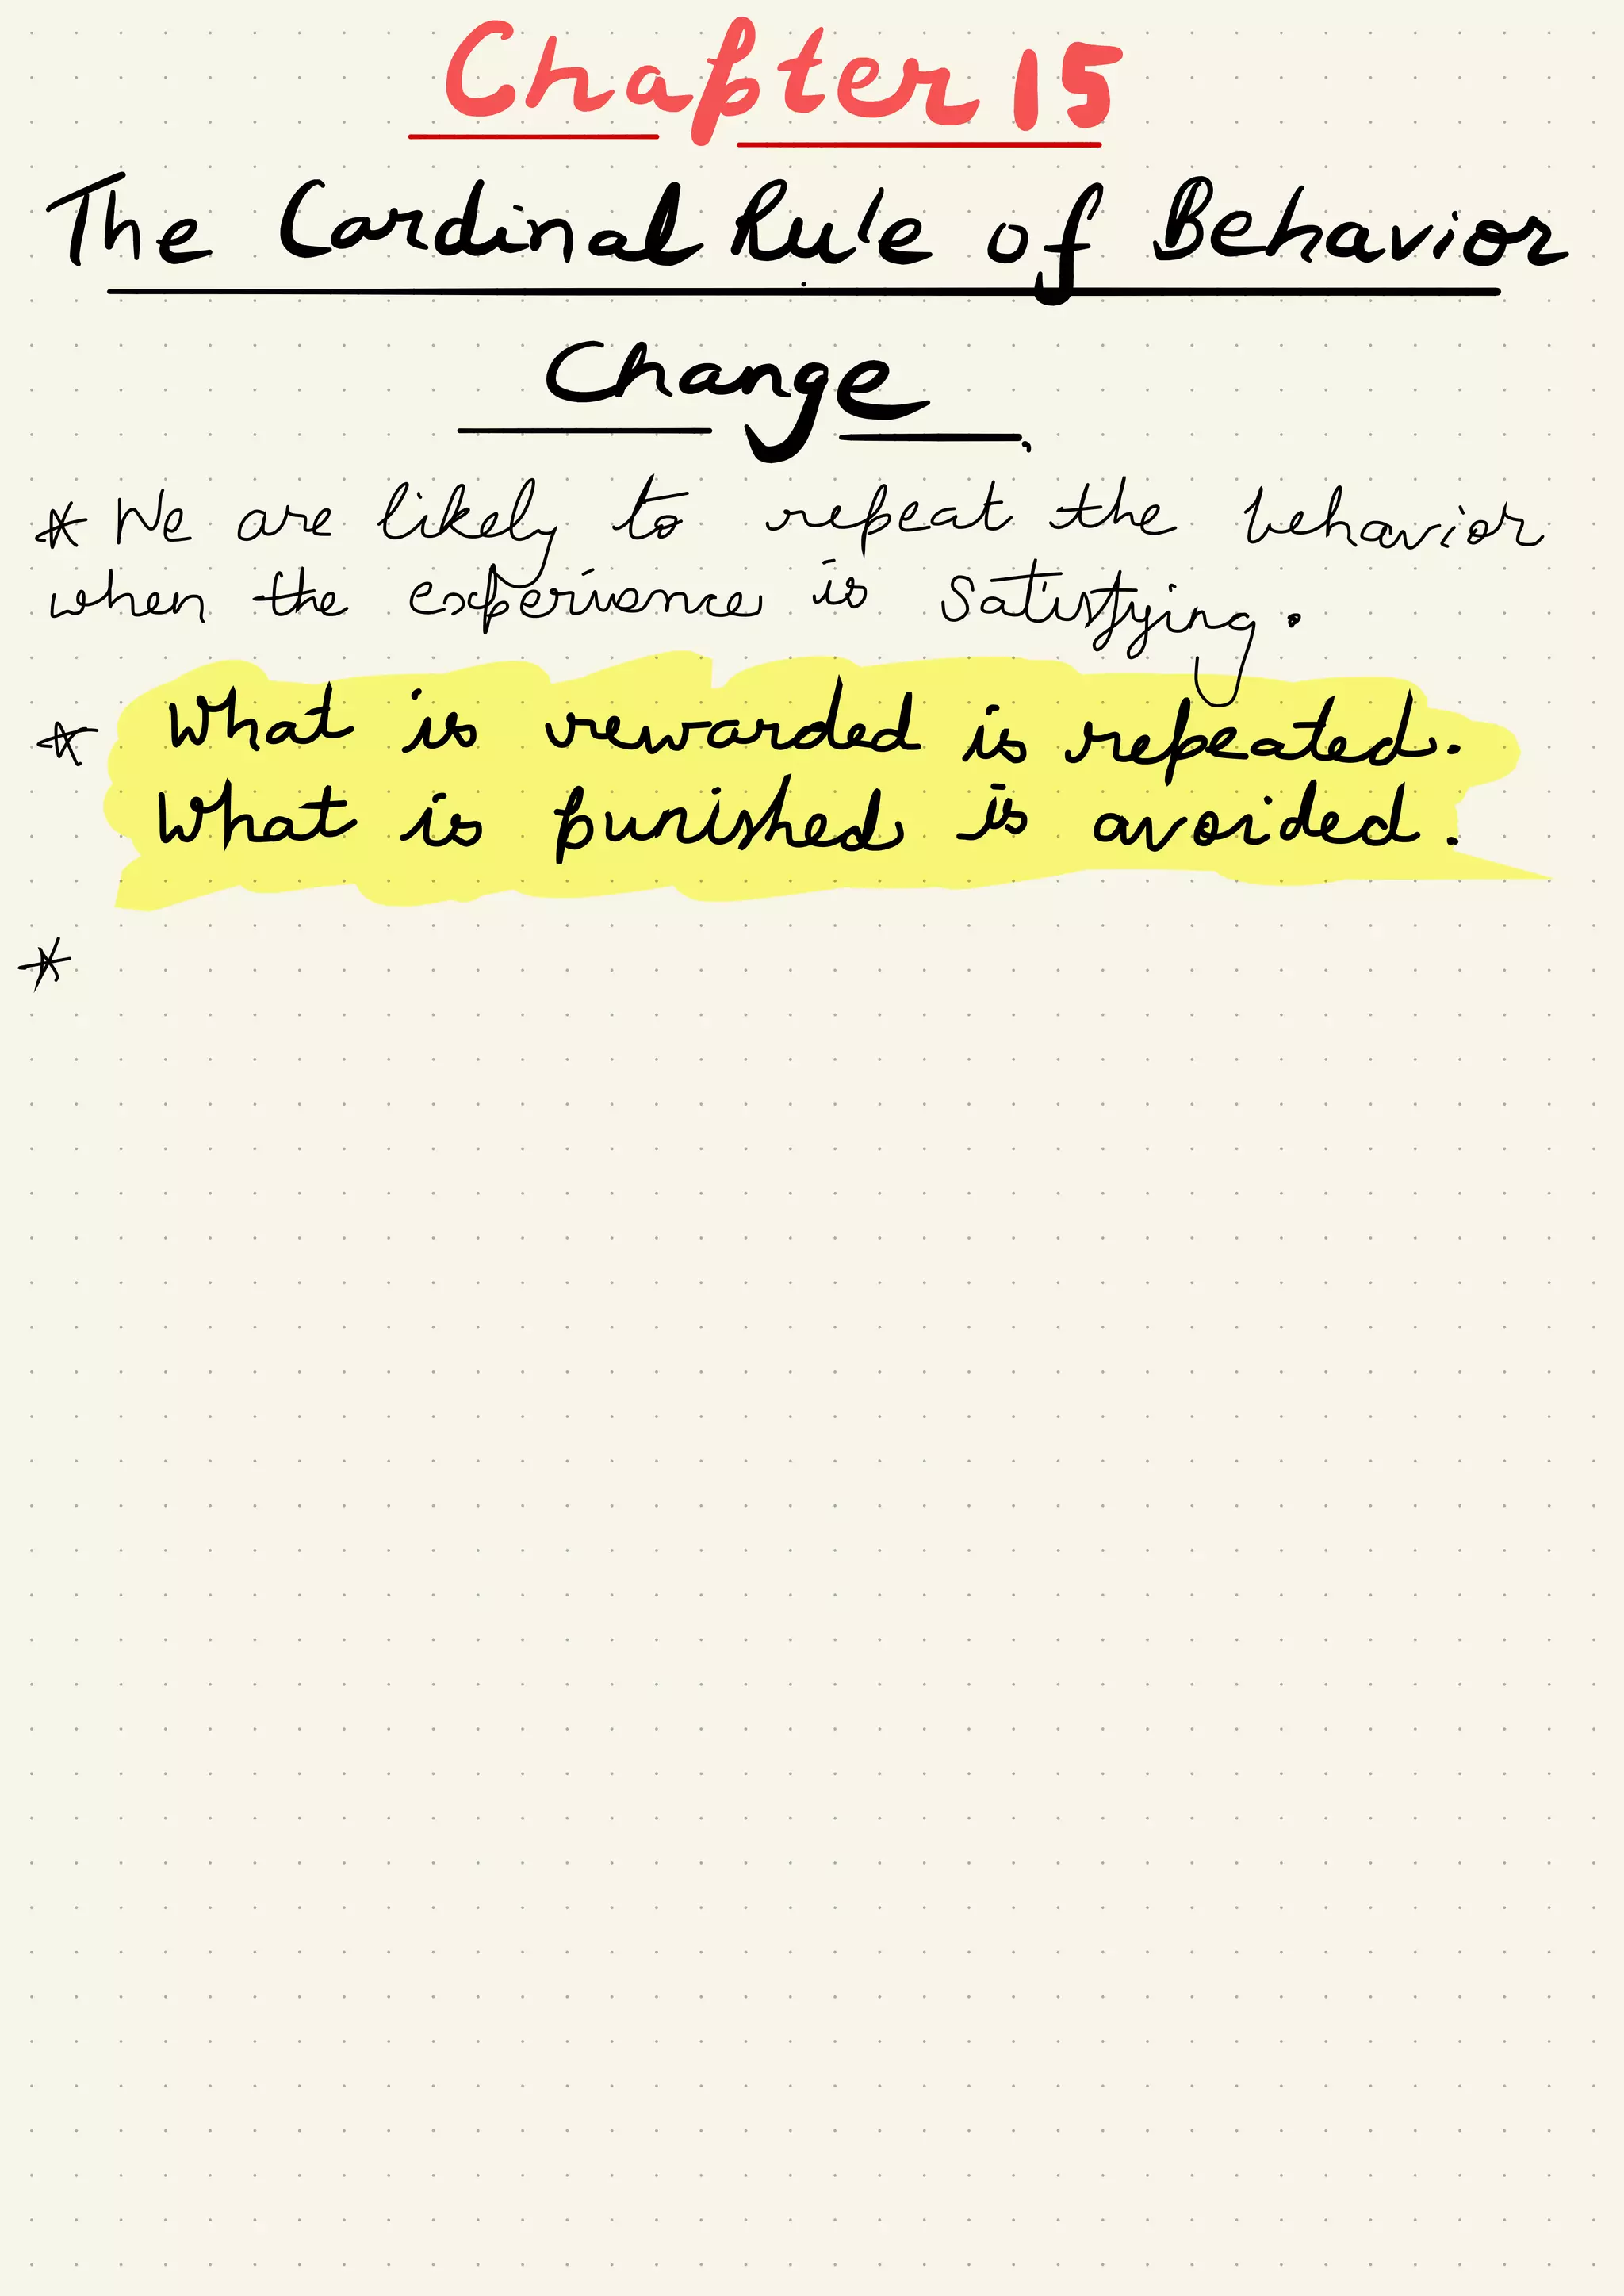 Chapter 15
The Cardinal Rule of Behavior
Change
* We are likely to repeat the behavior
when the experience is satisfying.
* What is rewarded is repeated.
What is punished is avoided.
*